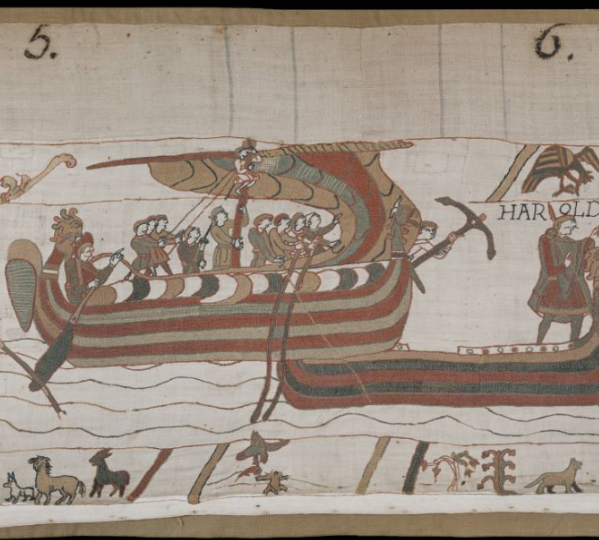 5.
6.
HAROLD